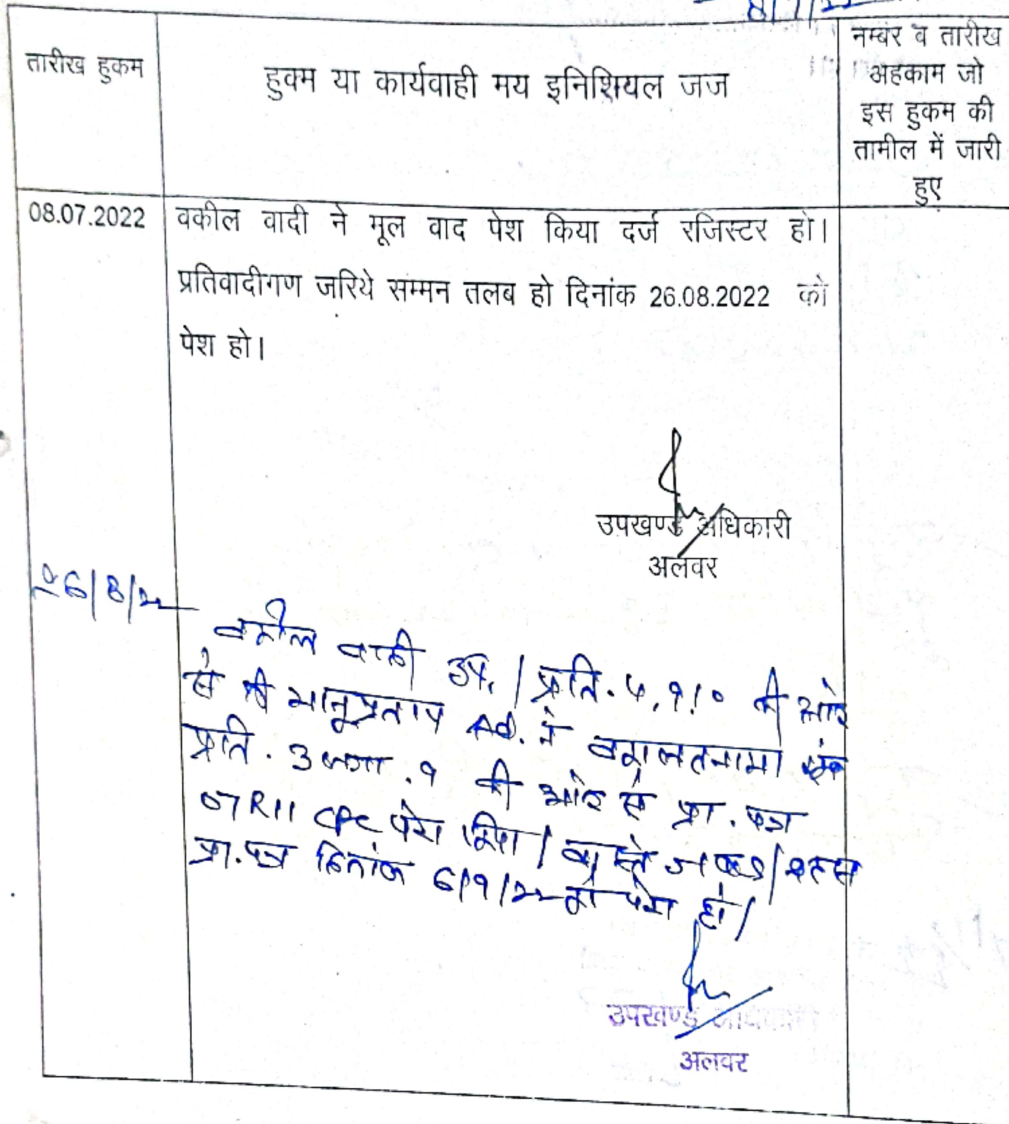 8/7/22
तारीख हुकम
हुक्म या कार्यवाही मय इनिशियल जज
नम्बर व तारीख
अहकाम जो
इस हुकम की
तामील में जारी
हुए
08.07.2022
वकील वादी ने मूल वाद पेश किया दर्ज रजिस्टर हो।
प्रतिवादीगण जरिये सम्मन तलब हो दिनांक 26.08.2022 को
पेश हो।
उपखण्ड अधिकारी
अलवर
26/8/22
वकील वादी उप. | प्रति. 5, 9, 10 की ओर
से श्री भानुप्रताप Ad. ने वकालतनामा एंव
प्रति. 3 9 की ओर से प्रा. पत्र
07 R11 CPC पेश किया | वास्ते जवाब/बहस
प्रा.पत्र दिनांक 6/9/22 को पेश हो |
उपखण्ड अधिकारी
अलवर